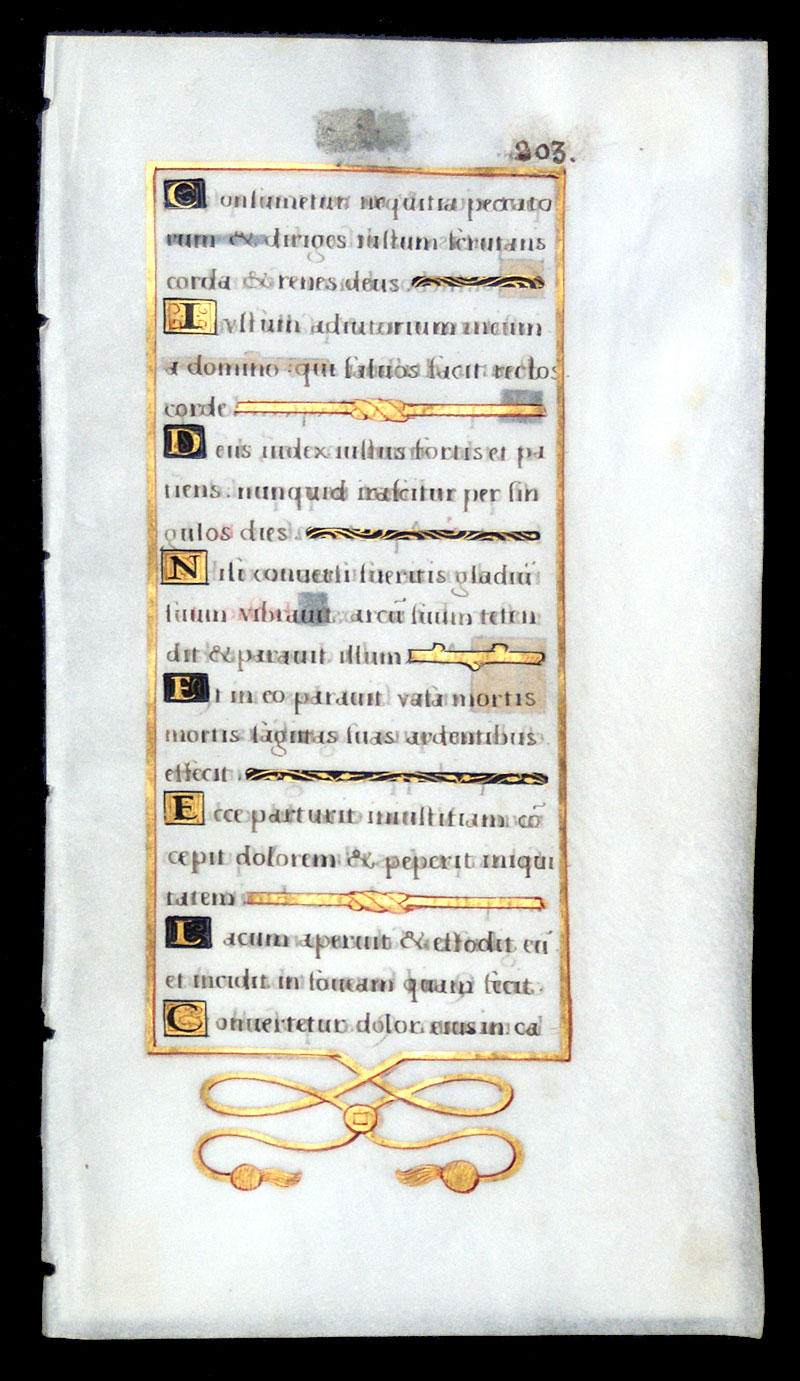 203.
Consumetur nequitia peccato
rum & diriges iustum scrutans
corda & renes deus
Ivstum adiutorium meum
a domino : qui saluos facit rectos
corde
Deus iudex iustus fortis et pa
tiens : nunquid irascitur per sin
gulos dies
Nisi conuersi fueritis gladiū
suum vibrauit : arcū suum teten
dit & parauit illum
Et in eo parauit vasa mortis
mortis sagittas suas ardentibus
effecit .
Ecce parturit iniustitiam cō
cepit dolorem & peperit iniqui
tatem
Lacum aperuit & effodit eū
et incidit in foueam quam fecit .
Conuertetur dolor eius in ca